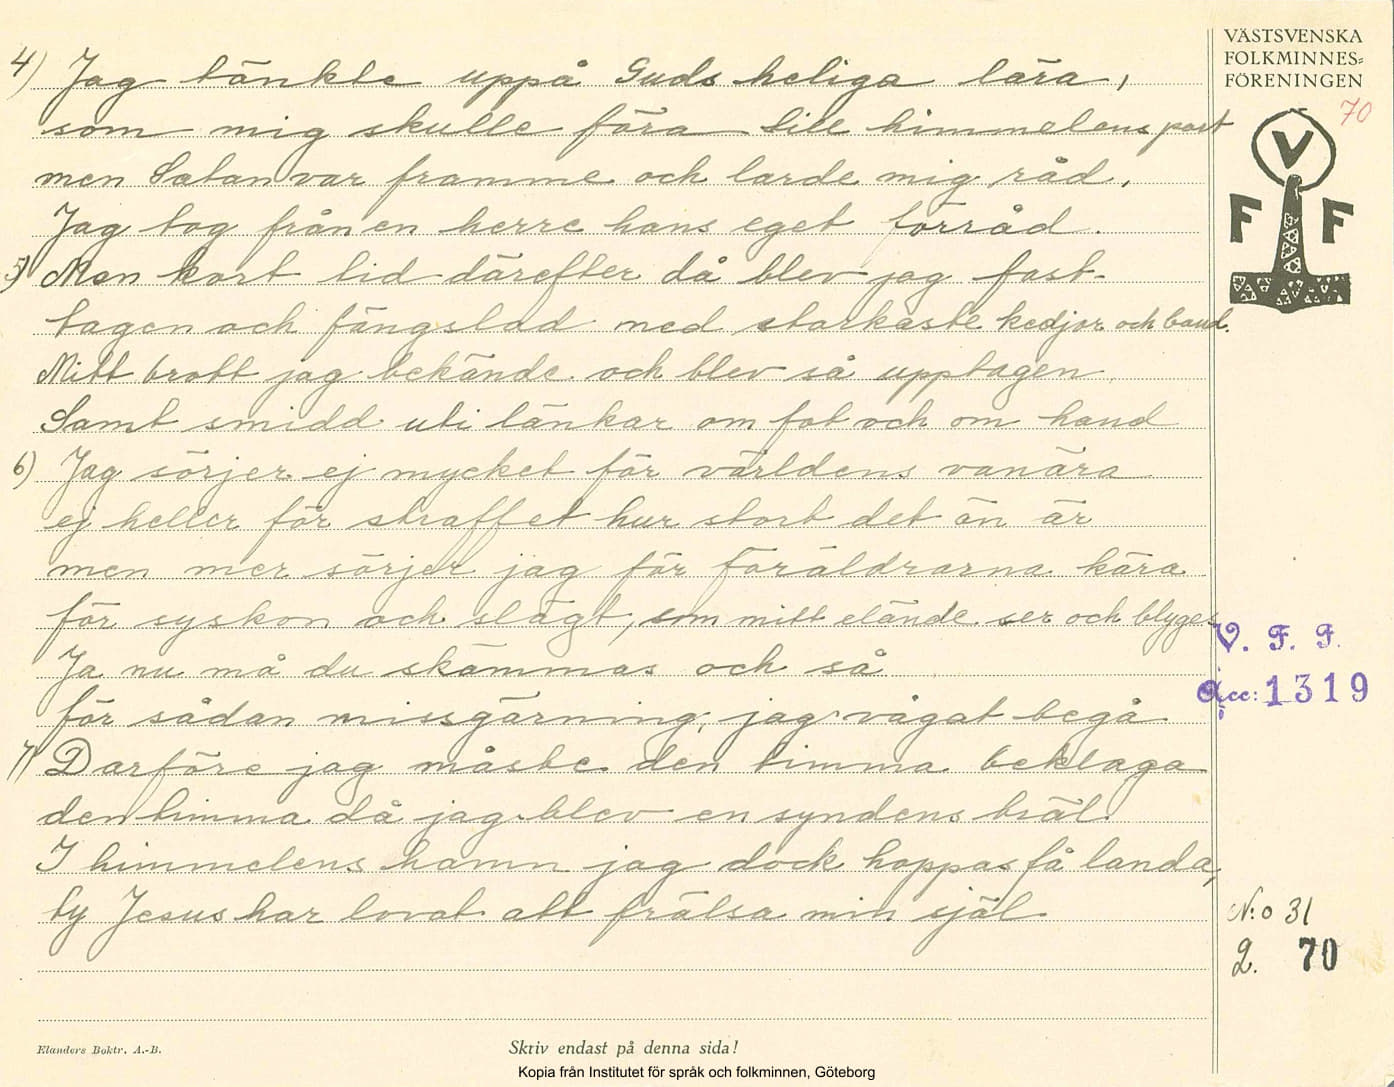 VÄSTSVENSKA
FOLKMINNES=
FÖRENINGEN
70
V
F F
4) Jag tänkte uppå Guds heliga lära,
som mig skulle föra till himmelens port
men Satan var framme och larde mig råd,
Jag tog från en herre hans eget förråd.
5) Men kort tid därefter då blev jag fast-
tagen och fängslad med starkaste kedjor och band.
Mitt brott jag bekände och blev så upptagen
Samt smidd uti länkar om fot och om hand
6) Jag sörjer ej mycket för världens vanära
ej heller för straffet hur stort det än är
men mer sörjer jag för föräldrarna kära
för syskon och slägt, som mitt elände ser och blyges
Ja nu må du skämmas och så
för sådan missgärning, jag vågat begå
7) Darföre jag måste den timma beklaga
den timma då jag blev en syndens träl.
I himmelens hamn jag dock hoppas få landa,
ty Jesus har lovat att frälsa min själ
V. F. F.
Acc: 1319
N:o 31
2. 70
Elanders Boktr. A.-B.
Skriv endast på denna sida!
Kopia från Institutet för språk och folkminnen, Göteborg